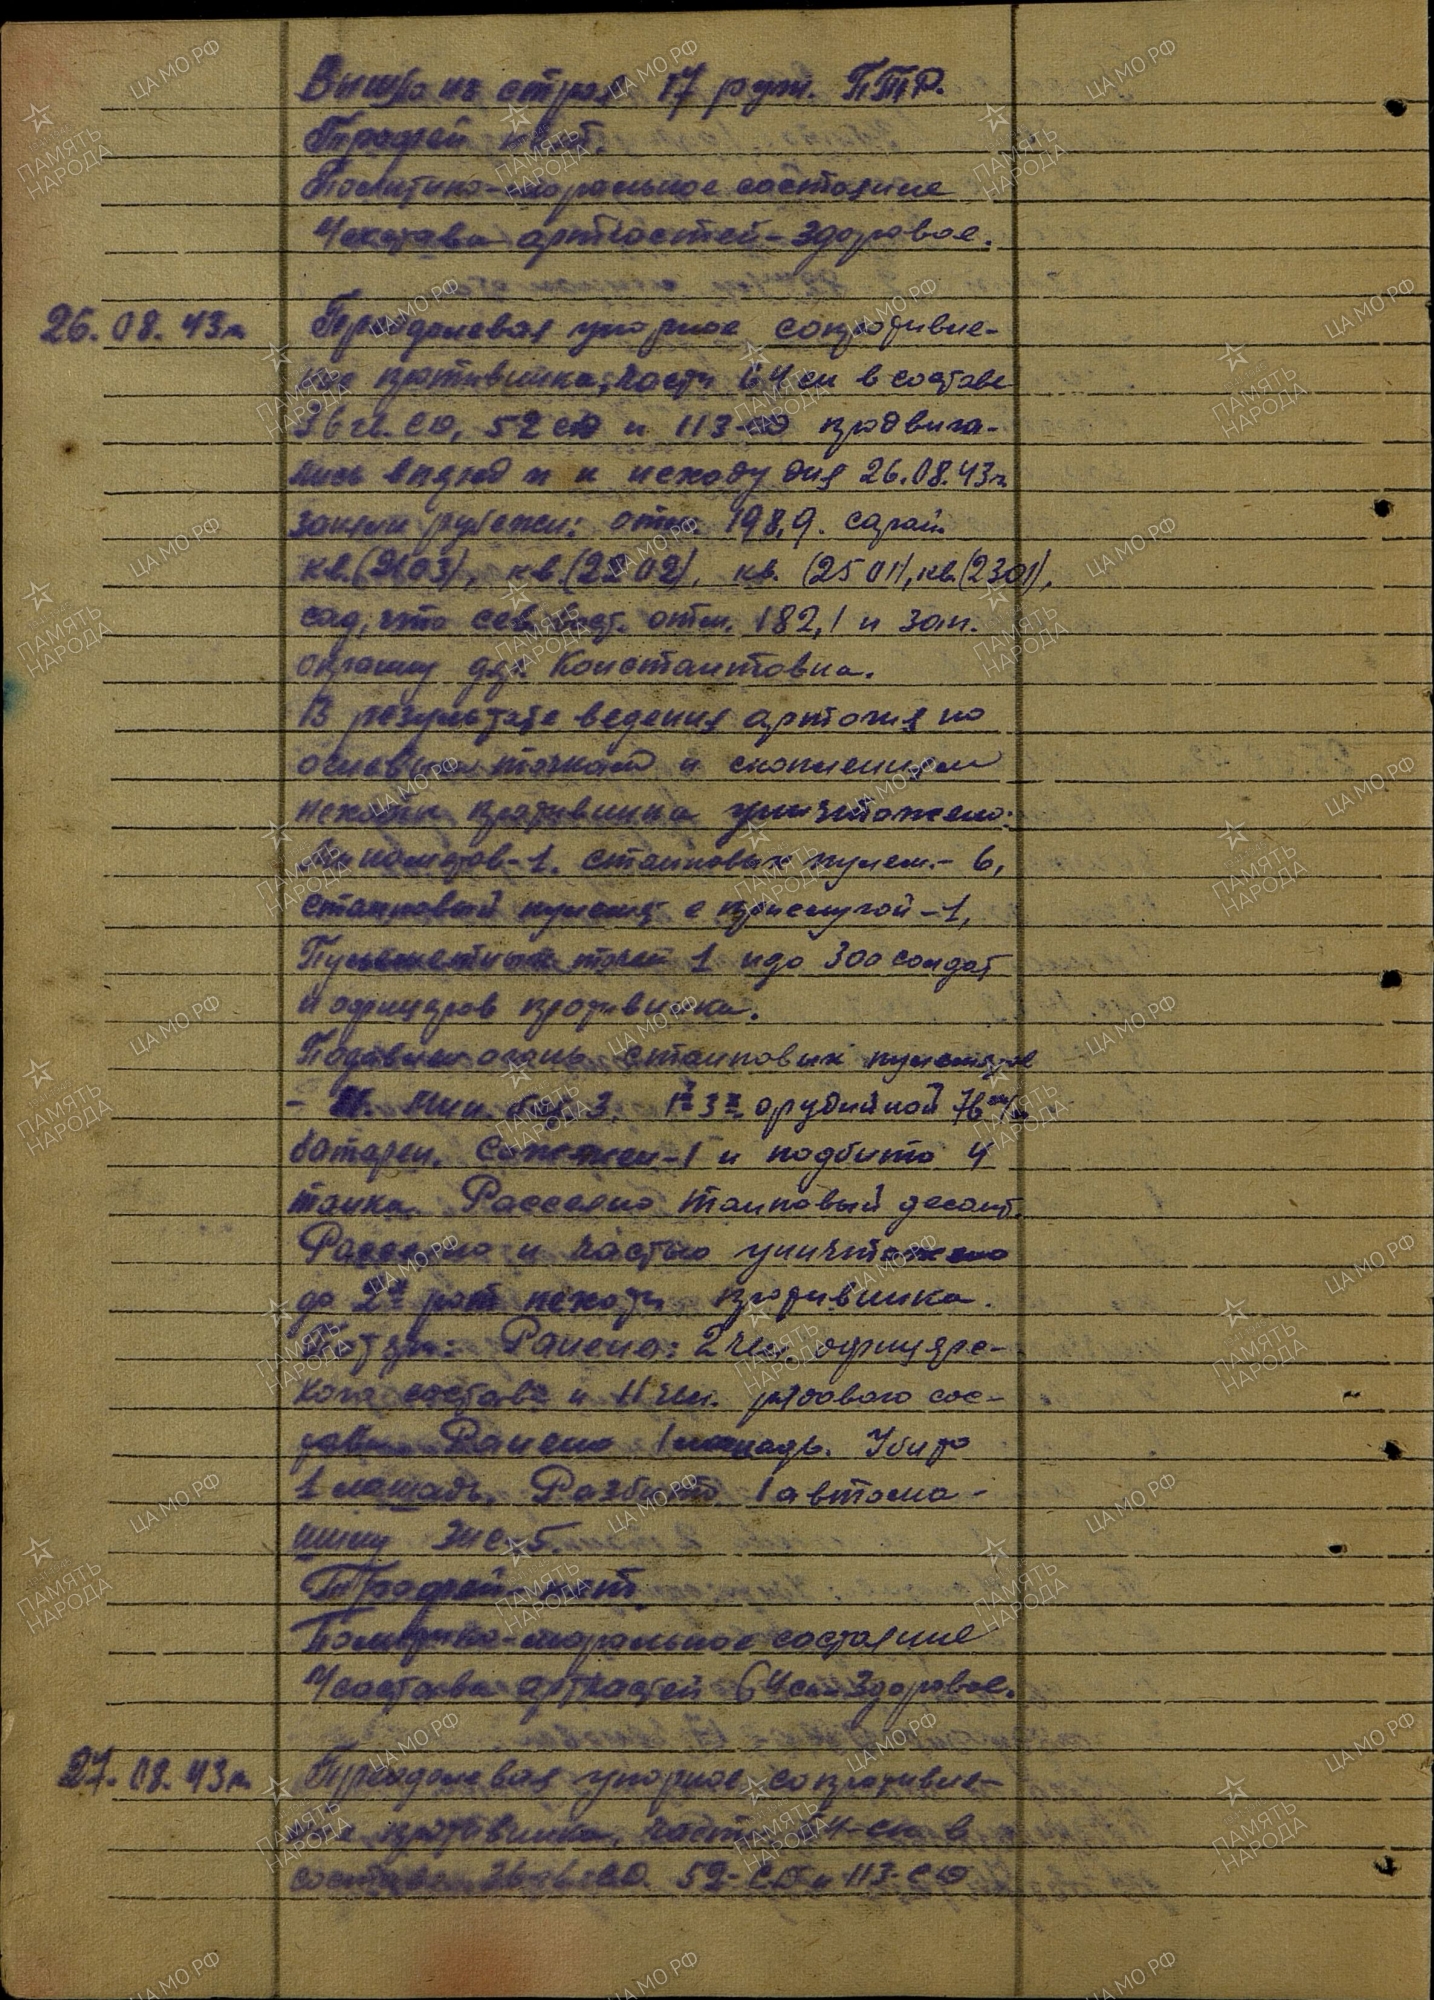 Вышло из строя 17 руж. ПТР.
Трофей нет.
Политико-моральное состояние
Ч/состава артчастей - здоровое.
26.08.43г. Преодолевая упорное сопротивле-
ние противника, части 64 ск в составе
36 гв. СД, 52 СД и 113-СД продвига-
лись вперед и к исходу дня 26.08.43г.
заняли рубежи: отм. 198,9. сарай
кв.(2103), кв.(2202), кв. (2501), кв.(2301),
сад, что сев. вост. отм. 182,1 и зап.
окраину дер. Константовка.
В результате ведения артогня по
огневым точкам и скоплениям
пехоты противника уничтожено:
Минометов-1. станковых пулем.- 6,
станковый пулемет с прислугой-1,
Пулеметных точек 1 и до 300 солдат
и офицеров противника.
Подавлен огонь станковых пулеметов
- мин. бат. 3. 1-й 3-х орудийной 76 м/м
батареи. Сожжен-1 и подбито 4
танка. Рассеяно танковый десант.
Рассеяно и частью уничтожено
до 2х рот пехоты противника.
Потери: Ранено: 2 чел. офицерс-
кого состава и 11 чел. рядового сос-
тава. Ранено 1 лошадь. Убито
1 лошадь. Разбито 1 автома-
шину ЗИС-5.
Трофей-нет.
Политико-моральное состояние
Ч/состава артчастей 64 ск-Здоровое.
27.08.43г. Преодолевая упорное сопротивле-
ние противника, части 64-ск в
составе 36 гв. СД. 52-СД и 113-СД
ЦАМО РФ
ПАМЯТЬ НАРОДА